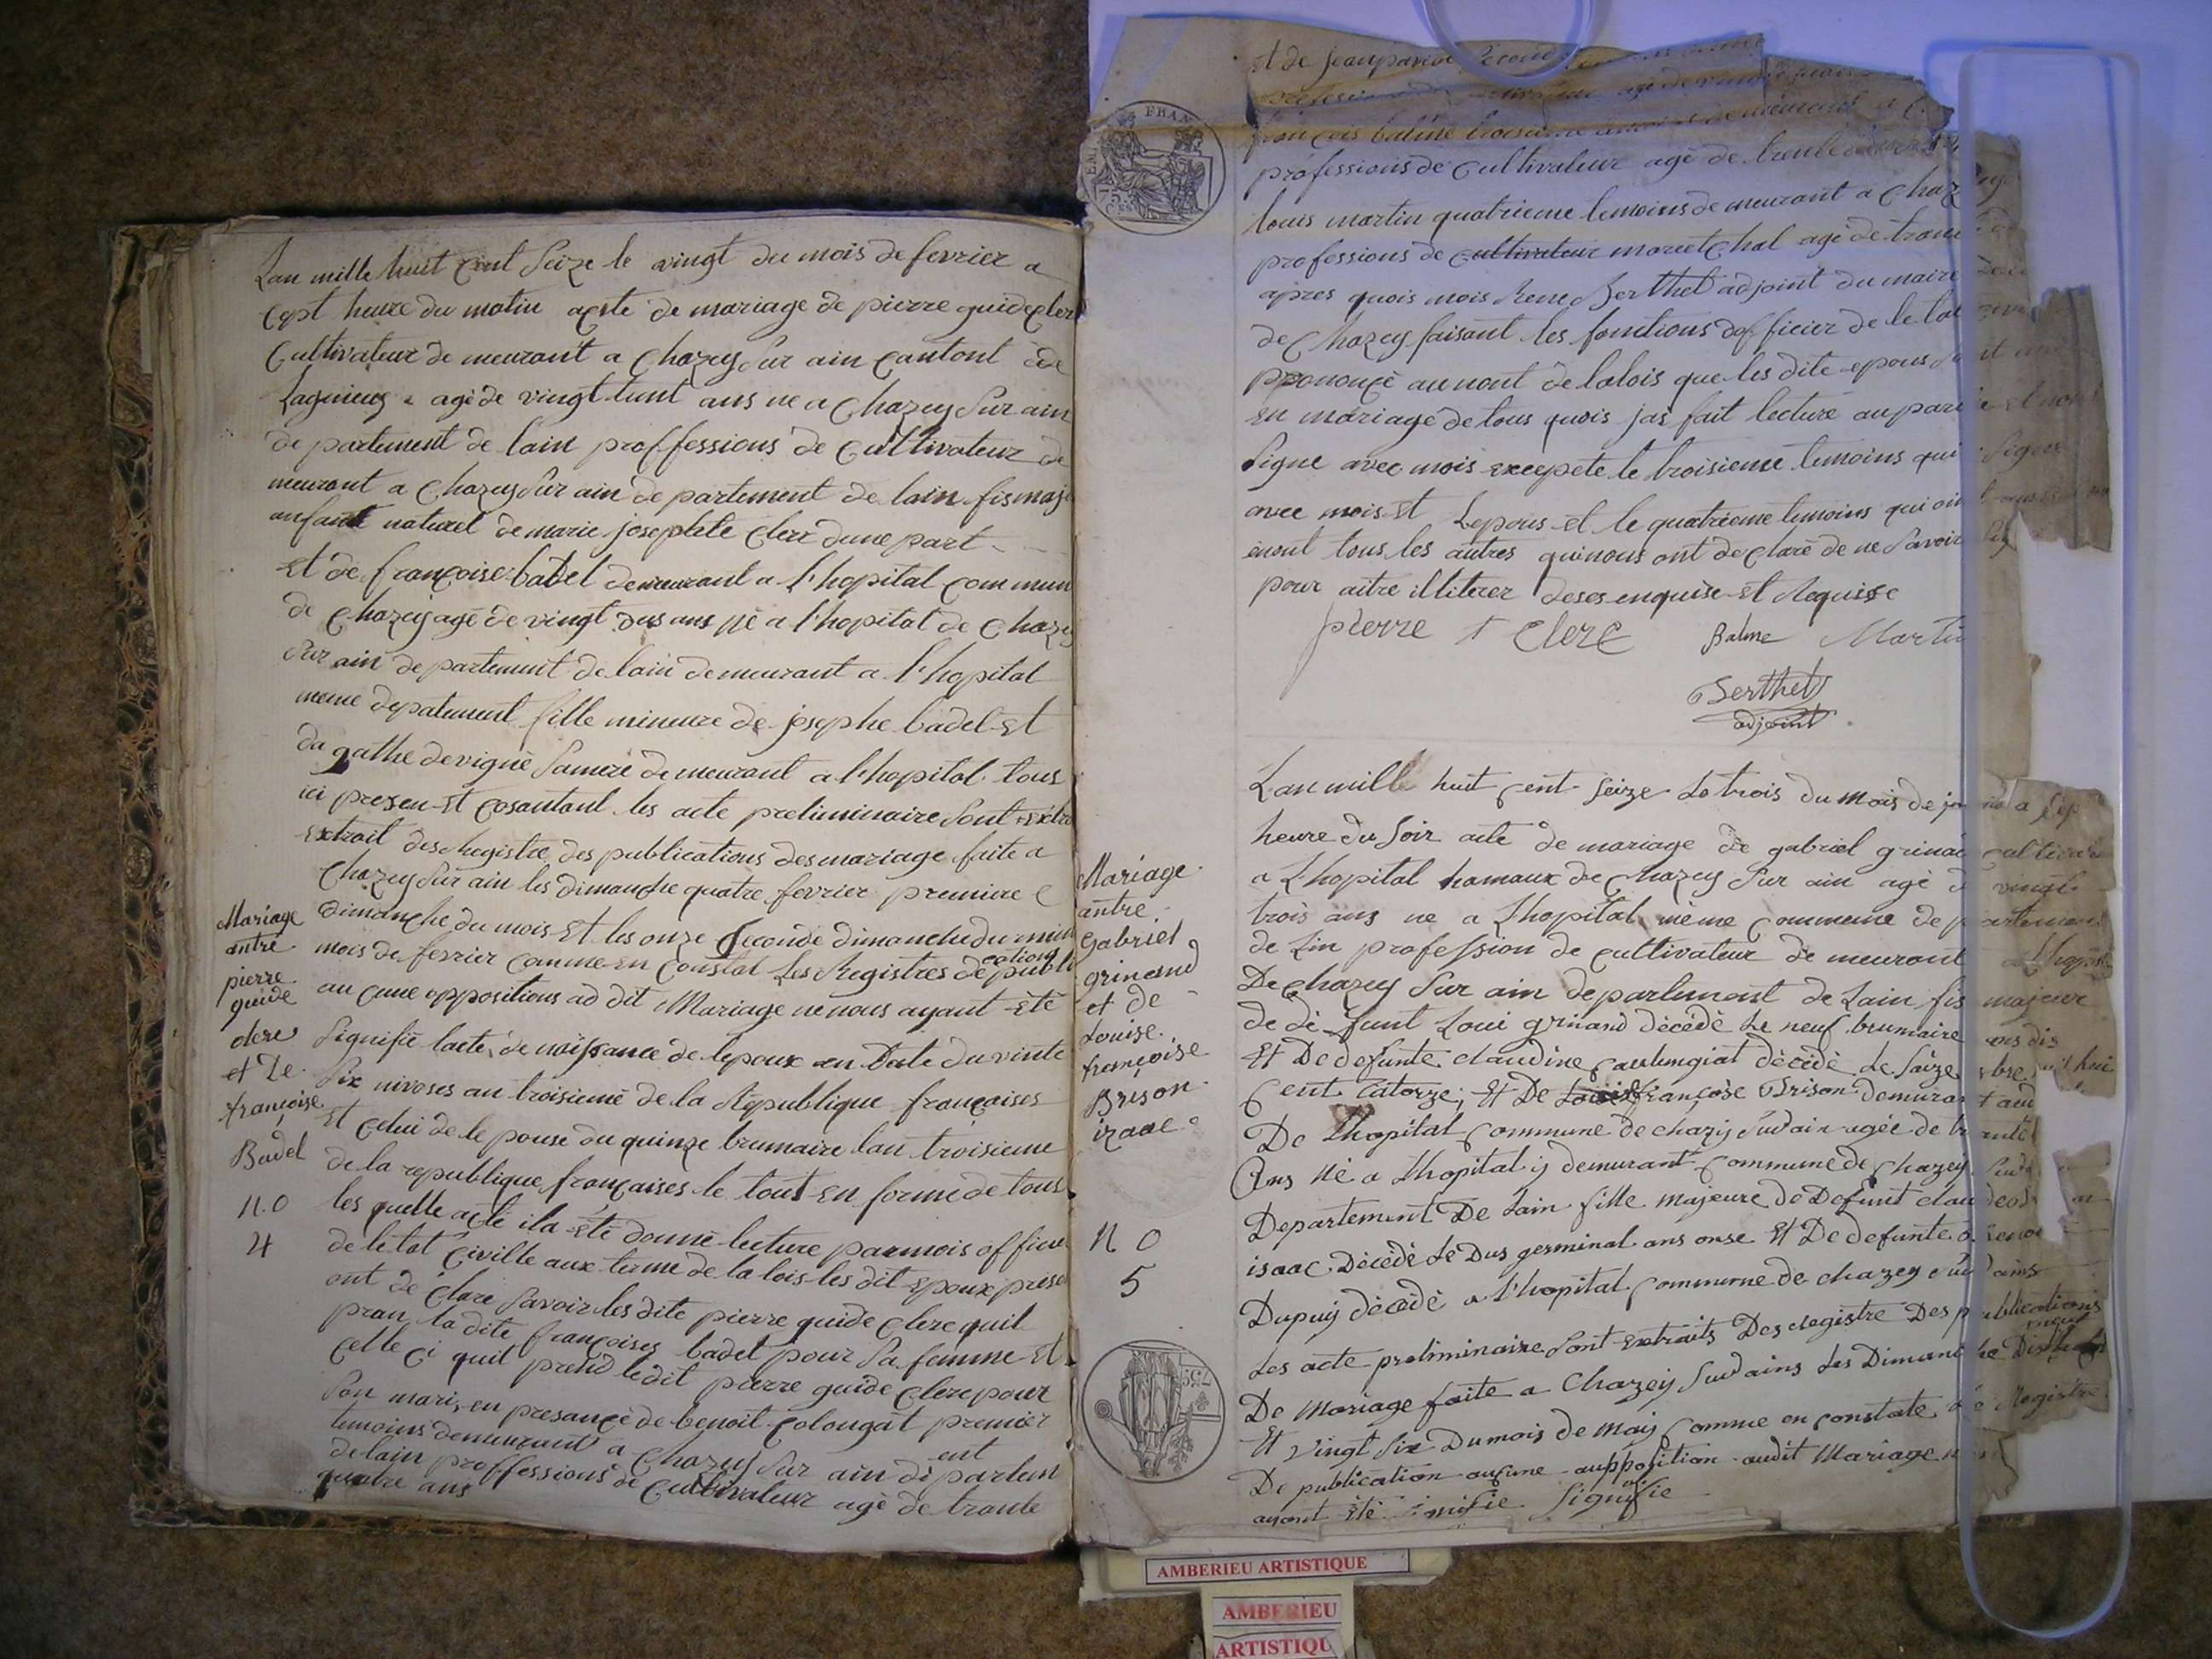 Lan mille huit cent Seize le vingt du mois de fevrier a
Cept heure du matin acte de mariage de pierre guide clerc
Cultivateur de meurant a Chazey Sur ain Cantont de
Lagnieug agè de vingt tunt ans ne a Chazey Sur ain
de partement de lain proffessions de Cultivateur de
meurant a Chazey Sur ain de partement de lain fis maj
anfant naturel de marie josephte Clerc dune part
Et de françoise badel demeurant a l'hopital Commun
de Chazey agè de vingt dus ans nè a l'hopital de Chazey
Sur ain de partement de lain demeurant a l'hopital
meme depatement fille mineure de josephe badel Et
da gathe devigne Samere demeurant a l'hopital tous
ici presen Et Cosantant les acte preliminaire Sont
Extrait des Registre des publications des mariage faite a
Chazey Sur ain les dimanche quatre fevrier premiere
dimanche du mois Et les onze Seconde dimanche du
mois de fevrier Comme en Constat Les Registres de publi
cations
au cune oppositions ad dit Mariage ne nous ayant Ete
Signifie lacte de naissance de lepoux en Date du vinte
Six nivoses an troisieme de la Republique françaises
Et celui de le pouse du quinze brumaire lan troisieme
de la republique françaises le tout en forme de tous
les quelle acte il a Ete donnè lecture parmois officie
de letat Civille aux terme de la lois les dit Epoux prese
ont de Clare Savoir les dite pierre guide Clerc quil
pran la dite françoises badel pour Sa femme Et
Celle Ci quit prend ledit pierre guide Clerc pour
Son mari en presance de benoit Colongat premier
temoins demeurant a Chazey Sur ain di partem
ent
de lain proffessions de Cultivateur agè de trante
quatre ans
Mariage
antre
pierre
guide
clere
et De
françoise
Badel
N.O
4
Et de Jean
françois balme troisieme
professions de Cultivateur agè de trente
louis martin quatrieme temoins de meurant a Chaz
professions de cultivateur maretChal agè de trant
apres quois mois Rene Berthet adjoint du maire
de Chazey faisant les fonctions dofficier de le tat
pponouçè aunont de lalois que les dite epous
en mariage de tous quois jas fait lecture au par
Signe avec mois excepete le troisieme temoins qui
avec mois Et Lepous Et le quatrieme temoins qui on
enout tous les autres qui nous ont de Clarè de ne Savoir
pour aitre illiterer deses enquise Et Requise
pierre Clerc
Balme Martin
Berthet
adjoint
L'an mille huit cent Seize Le trois du Mois de
heure du Soir acte de mariage de gabriel grinan Cultiva
a L'hopital hamaux de Chazey Sur ain agè d vingt
trois ans ne a Lhopital mème Commune de partement
de Lin profession de cultivateur de meurant a Lhopit
De Chazey Sur ain departement de Lain fis majeur
de dè funt Loui grinand dècèdè Le neuf brumaire
Et De defunte claudine dècèdè Le Saize
Cent Catorze; Et De françoise Brison demura
De Lhopital Commune de chazij Sud ain agèe de tr antè
Ans Nè a Lhopital ij demurant Commune de Chazey
Departement De Lain fille majeure de Defunt clau
isaac Dècèdè Le Dus germinal ans onse Et De defunte
Dupuij dècèdè a l'hopital Commune de chazey Sud ains
Les acte preliminaire Sont extraits Des Registre Des publications
De Mariage faite a Chazeij Sud ains Les Dimanche
Et vingt Six Dumois de Maij Comme en Constate Registre
De publication aucune aupposition audit Mariage
ayant Ete Signifie
Mariage
antre
gabriel
grinand
et de
Louise
françoise
Brison
izaac
N O
5
FRAN
AMBERIEU ARTISTIQUE
AMBERIEU
ARTISTIQU